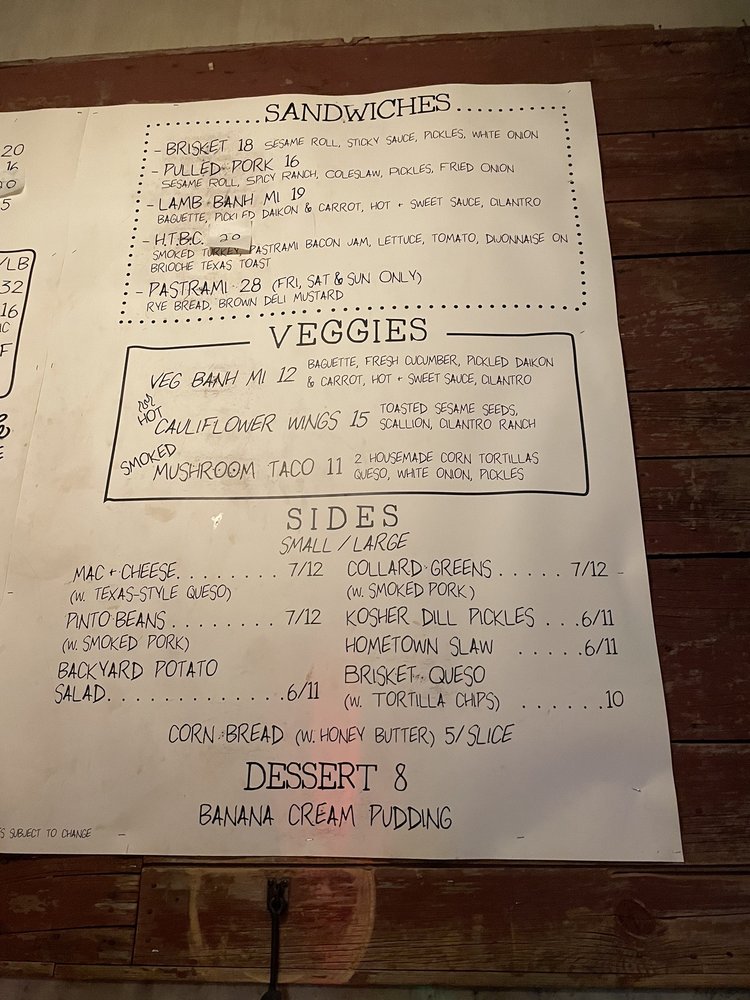 20
16
5
/LB
32
16
IC
F
E
S SUBJECT TO CHANGE
SANDWICHES
- BRISKET 18 SESAME ROLL, STICKY SAUCE, PICKLES, WHITE ONION
- PULLED PORK 16
SESAME ROLL, SPICY RANCH, COLESLAW, PICKLES, FRIED ONION
- LAMB BANH MI 19
BAGUETTE, PICKLED DAIKON & CARROT, HOT + SWEET SAUCE, CILANTRO
- H.T.B.C. 20
SMOKED TURKEY, PASTRAMI BACON JAM, LETTUCE, TOMATO, DIJONNAISE ON
BRIOCHE TEXAS TOAST
- PASTRAMI 28 (FRI, SAT & SUN ONLY)
RYE BREAD, BROWN DELI MUSTARD
VEGGIES
VEG BANH MI 12 BAGUETTE, FRESH CUCUMBER, PICKLED DAIKON
& CARROT, HOT + SWEET SAUCE, CILANTRO
HOT CAULIFLOWER WINGS 15 TOASTED SESAME SEEDS,
SCALLION, CILANTRO RANCH
SMOKED MUSHROOM TACO 11 2 HOUSEMADE CORN TORTILLAS
QUESO, WHITE ONION, PICKLES
SIDES
SMALL / LARGE
MAC + CHEESE. . . . . . . . . . 7/12
(W. TEXAS-STYLE QUESO)
PINTO BEANS . . . . . . . . . . . 7/12
(W. SMOKED PORK)
BACKYARD POTATO
SALAD. . . . . . . . . . . . . . . . 6/11
COLLARD GREENS . . . . . . 7/12
(W. SMOKED PORK)
KOSHER DILL PICKLES . . . 6/11
HOMETOWN SLAW . . . . . . 6/11
BRISKET QUESO
(W. TORTILLA CHIPS) . . . . . . . 10
CORN BREAD (W. HONEY BUTTER) 5/SLICE
DESSERT 8
BANANA CREAM PUDDING